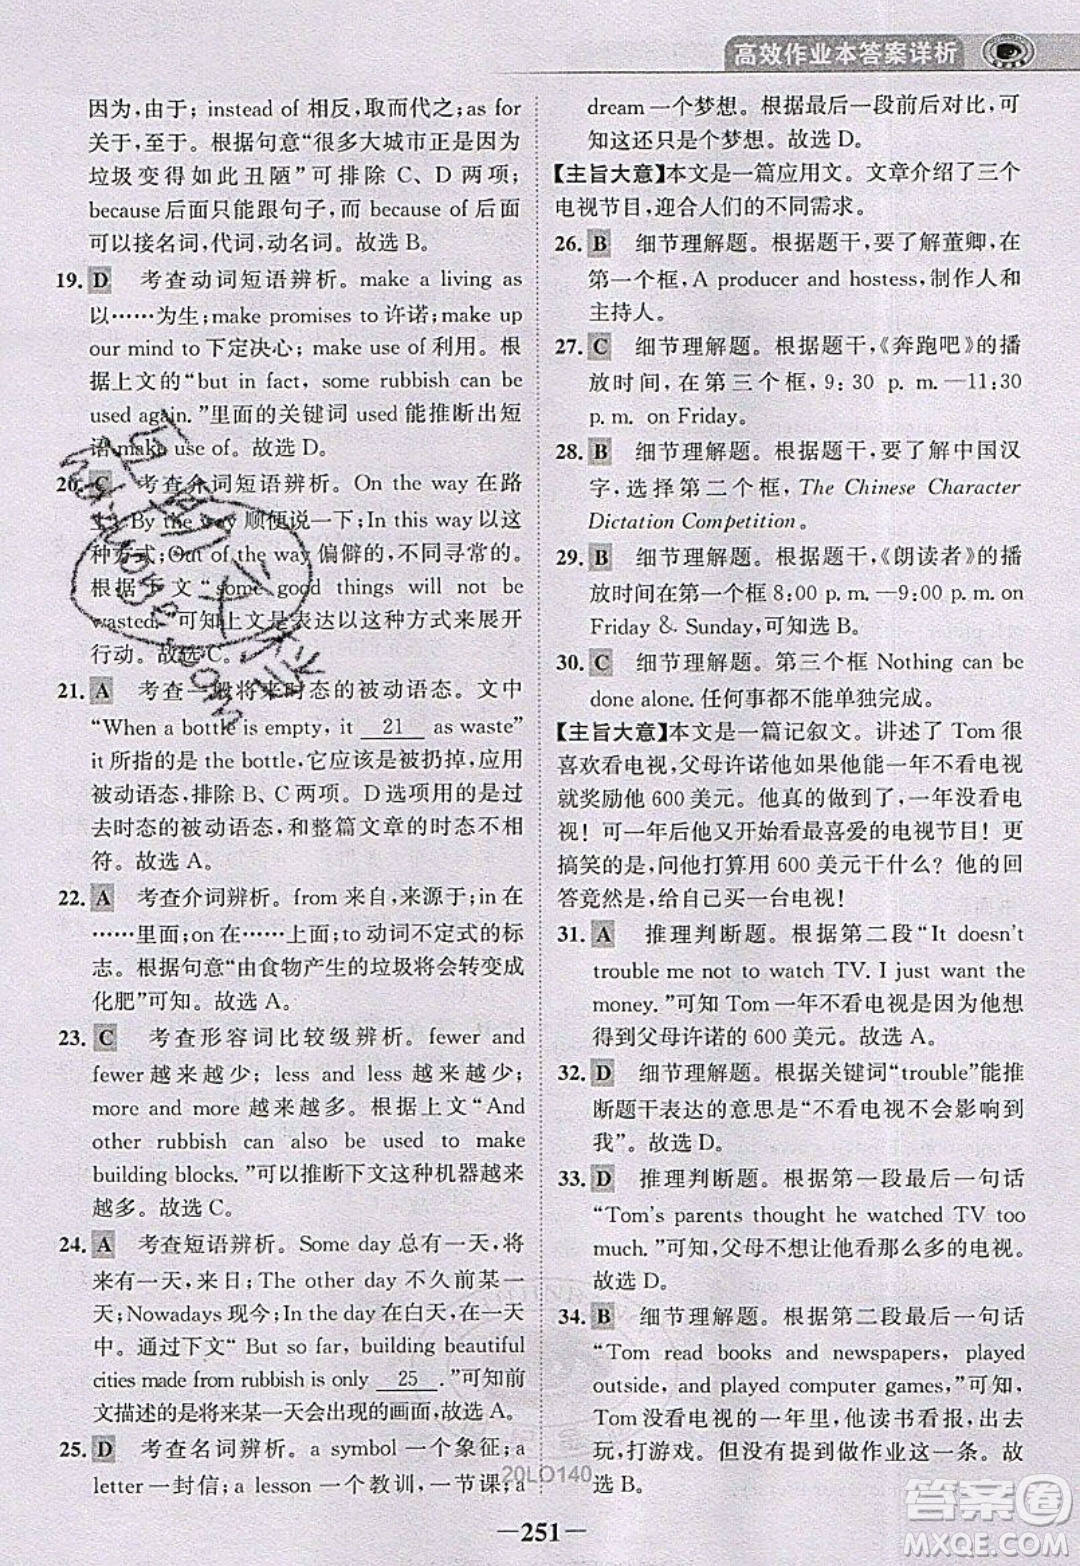 高效作业本答案详析
因为,由于; instead of 相反,取而代之; as for
关于,至于。根据句意“很多大城市正是因为
垃圾变得如此丑陋”可排除 C、D 两项,
because 后面只能跟句子,而 because of 后面
可以接名词,代词,动名词。故选 B。
19. D 考查动词短语辨析。make a living as
以……为生;make promises to 许诺;make up
our mind to 下定决心;make use of 利用。根
据上文的“but in fact, some rubbish can be
used again.”里面的关键词 used 能推断出短
语 make use of。故选 D。
20. C 考查介词短语辨析。On the way 在路
上;By the way 顺便说一下;In this way 以这
种方式;Out of the way 偏僻的,不同寻常的。
根据下文“some good things will not be
wasted.”可知上文是表达以这种方式来展开
行动。故选 C。
21. A 考查一般将来时态的被动语态。文中
“When a bottle is empty, it 21 as waste”
it 所指的是 the bottle,它应该是被扔掉,应用
被动语态,排除 B、C 两项。D 选项用的是过
去时态的被动语态,和整篇文章的时态不相
符。故选 A。
22. A 考查介词辨析。from 来自,来源于;in 在
……里面;on 在……上面;to 动词不定式的标
志。根据句意“由食物产生的垃圾将会转变成
化肥”可知。故选 A。
23. C 考查形容词比较级辨析。fewer and
fewer 越来越少; less and less 越来越少;
more and more 越来越多。根据上文“And
other rubbish can also be used to make
building blocks.”可以推断下文这种机器越来
越多。故选 C。
24. A 考查短语辨析。Some day 总有一天,将
来有一天,来日;The other day 不久前某一
天;Nowadays 现今;In the day 在白天,在一天
中。通过下文“ but building beautiful
cities made from rubbish is only 25 .”可知前
文描述的是将来某一天会出现的画面,故选 A。
25. D 考查名词辨析。a symbol 一个象征;a
letter 一封信;a lesson 一个教训,一节课;a
dream 一个梦想。根据最后一段前后对比,可
知这还只是个梦想。故选 D。
【主旨大意】本文是一篇应用文。文章介绍了三个
电视节目,迎合人们的不同需求。
26. B 细节理解题。根据题干,要了解董卿,在
第一个框,A producer and hostess,制作人和
主持人。
27. C 细节理解题。根据题干,《奔跑吧》的播
放时间,在第三个框,9:30 p. m.—11:30
p. m. on Friday。
28. B 细节理解题。根据题干,了解中国汉
字,选择第二个框,The Chinese Character
Dictation Competition。
29. B 细节理解题。根据题干,《朗读者》的播
放时间,根据第一个框 8:00 p. m. on
Friday & Sunday,可知选 B。
30. C 细节理解题。第三个框 Nothing can be
done alone. 任何事都不能单独完成。
【主旨大意】本文是一篇记叙文。讲述了 Tom 很
喜欢看电视,父母许诺他如果他能一年不看电视
就奖励他 600 美元。他真的做到了,一年没看电
视!可一年后他又开始看最喜爱的电视节目!更
搞笑的是,问他打算用 600 美元干什么?他的回
答竟然是,给自己买一台电视!
31. A 推理判断题。根据第二段“It doesn't
trouble me not to watch TV. I just want the
money.”可知 Tom 一年不看电视是因为他想
得到父母许诺的 600 美元。故选 A。
32. D 细节理解题。根据关键词“trouble”能推
断题干表达的意思是“不看电视不会影响到
我”。故选 D。
33. D 推理判断题。根据第一段最后一句话
“Tom's parents thought he watched TV too
much.”可知,父母不想让他看那么多的电视。
故选 D。
34. B 细节理解题。根据第二段最后一句话
“Tom read books and newspapers, played
outside, and played computer games,”可知
Tom 没看电视的一年里,在读书看报,出去
玩,打游戏。但没有提到做作业这一条。故
选 B。
20LO140
—251—
答案圈
MXQE.COM